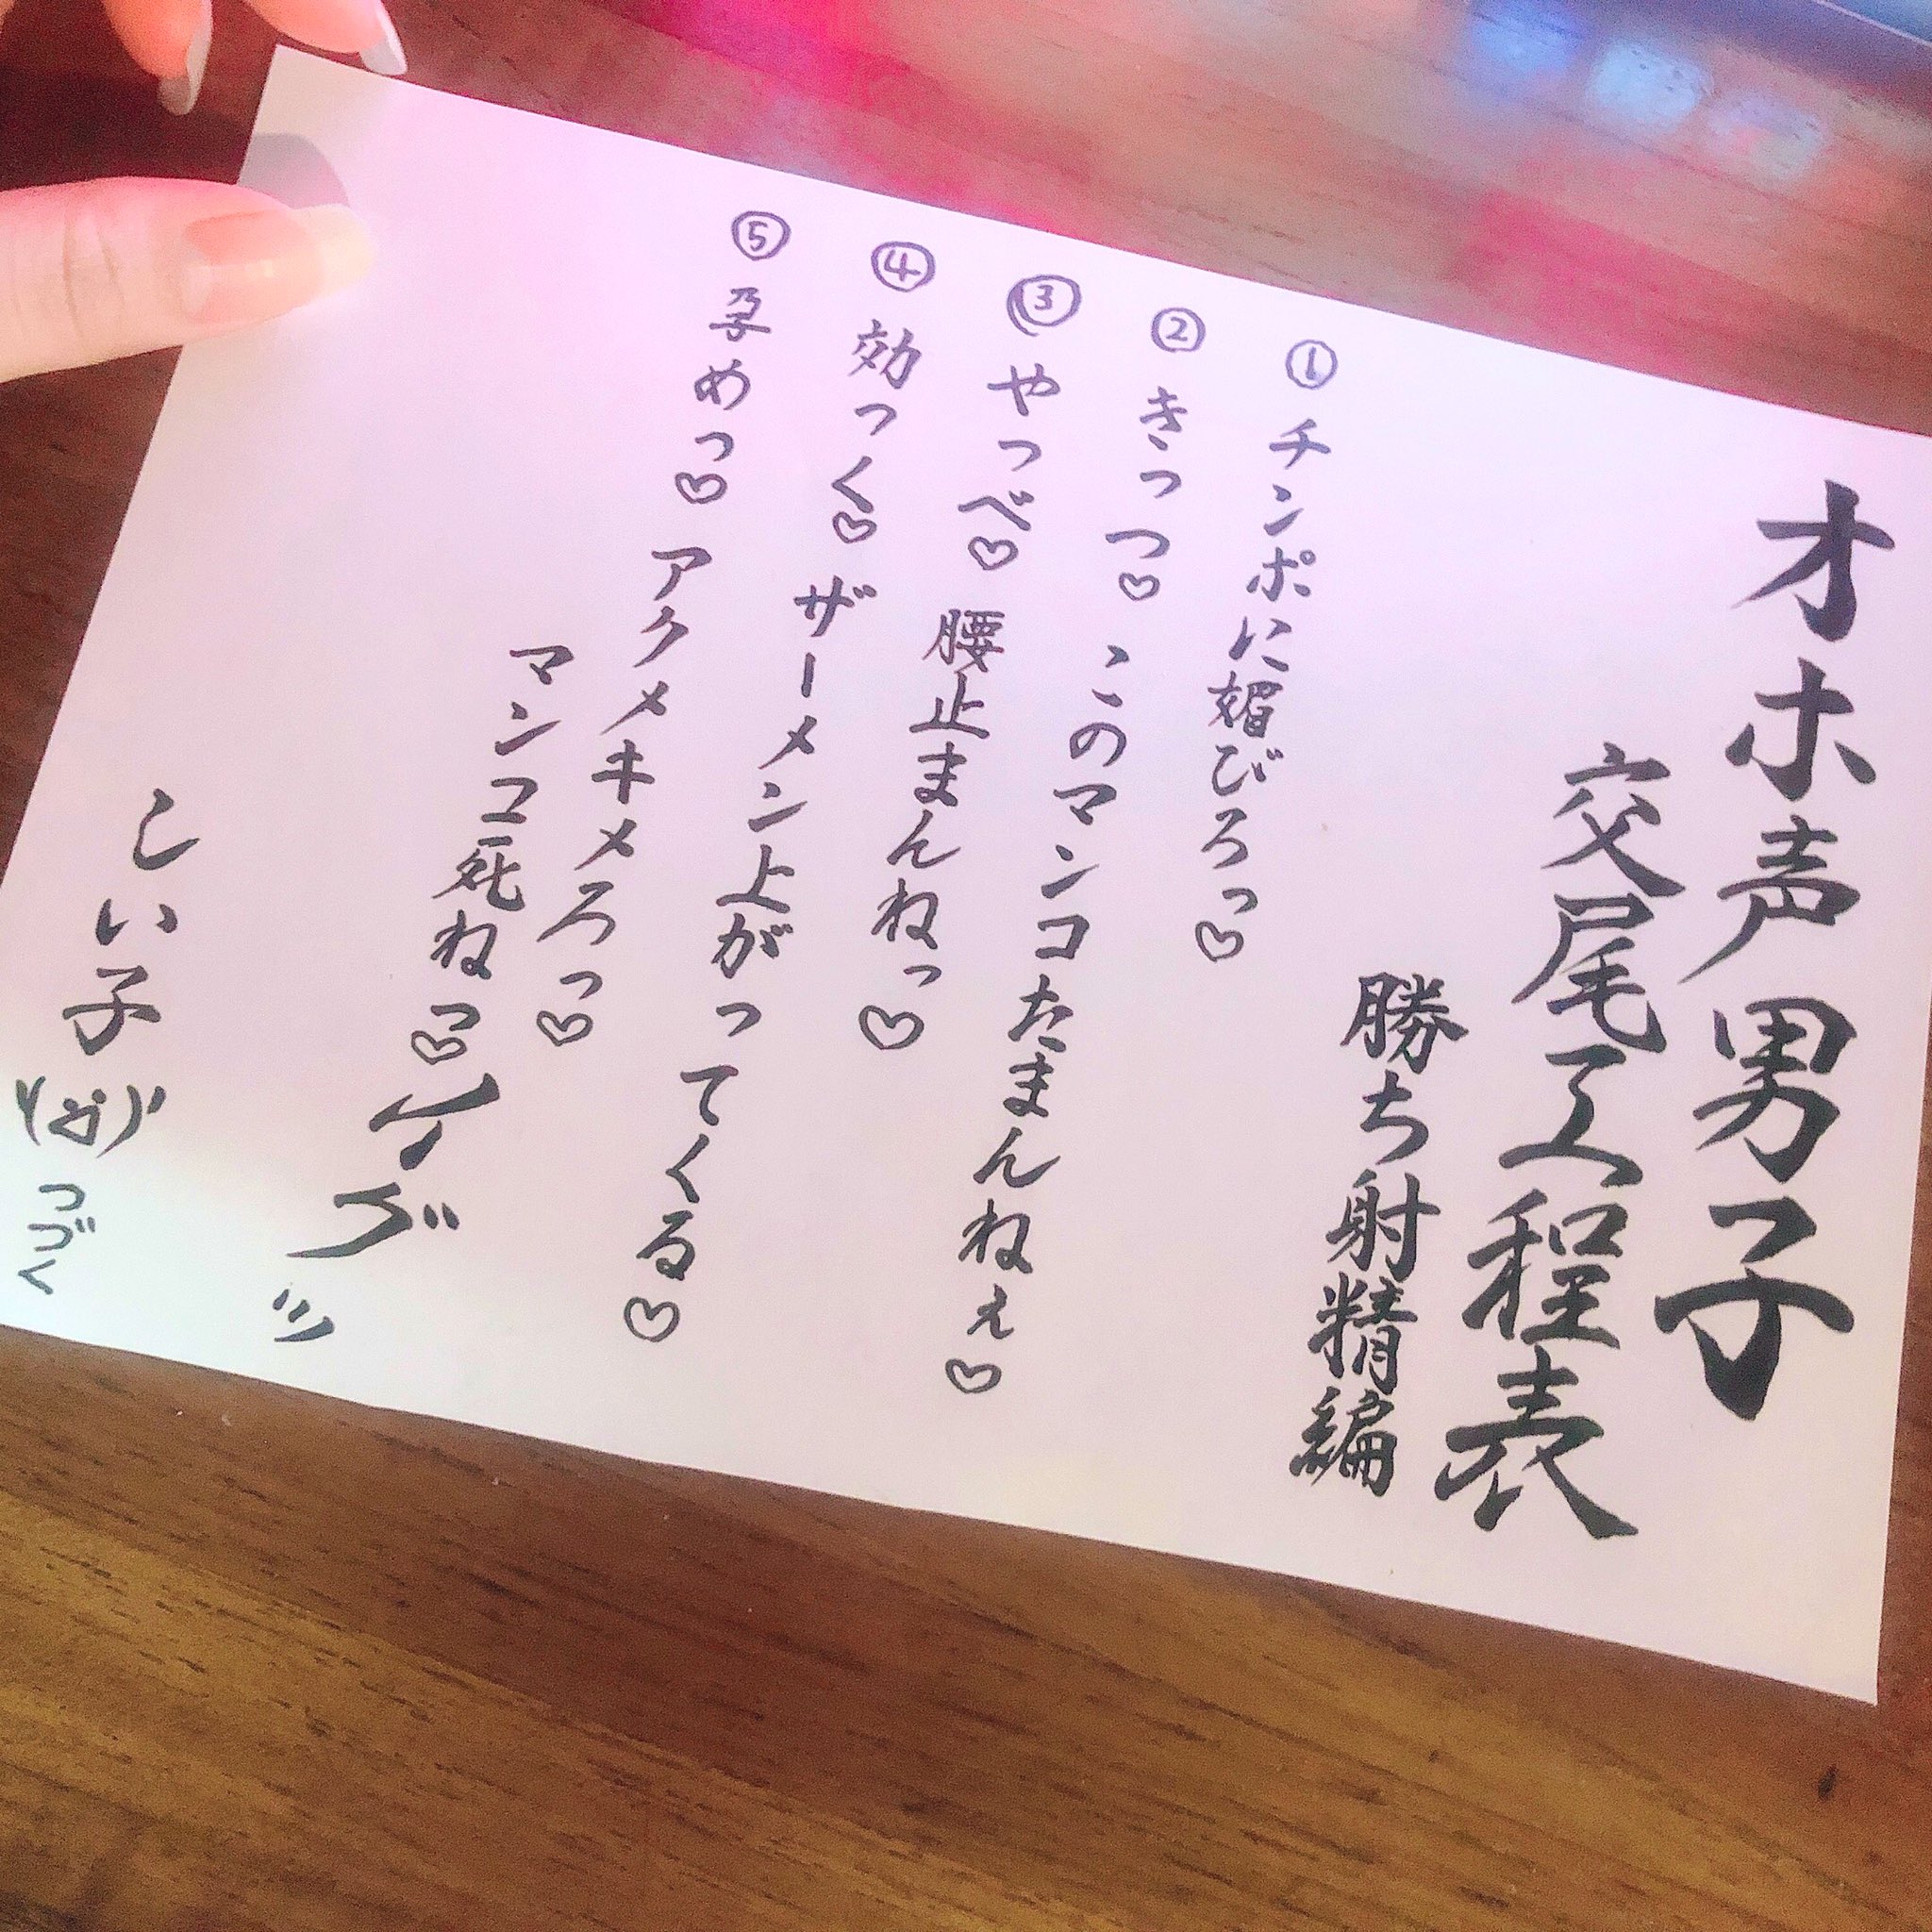 オホ声男子
交尾工程表
勝ち射精編
① チンポに媚びろっ♡
② きっつ♡ このマンコたまんねぇ♡
③ やっべ♡ 腰止まんねっ♡
④ 効っく♡ ザーメン上がってくる♡
⑤ 孕めっ♡ アクメキメろっ♡
マンコ死ねっ♡イグッ
しい子
つづく